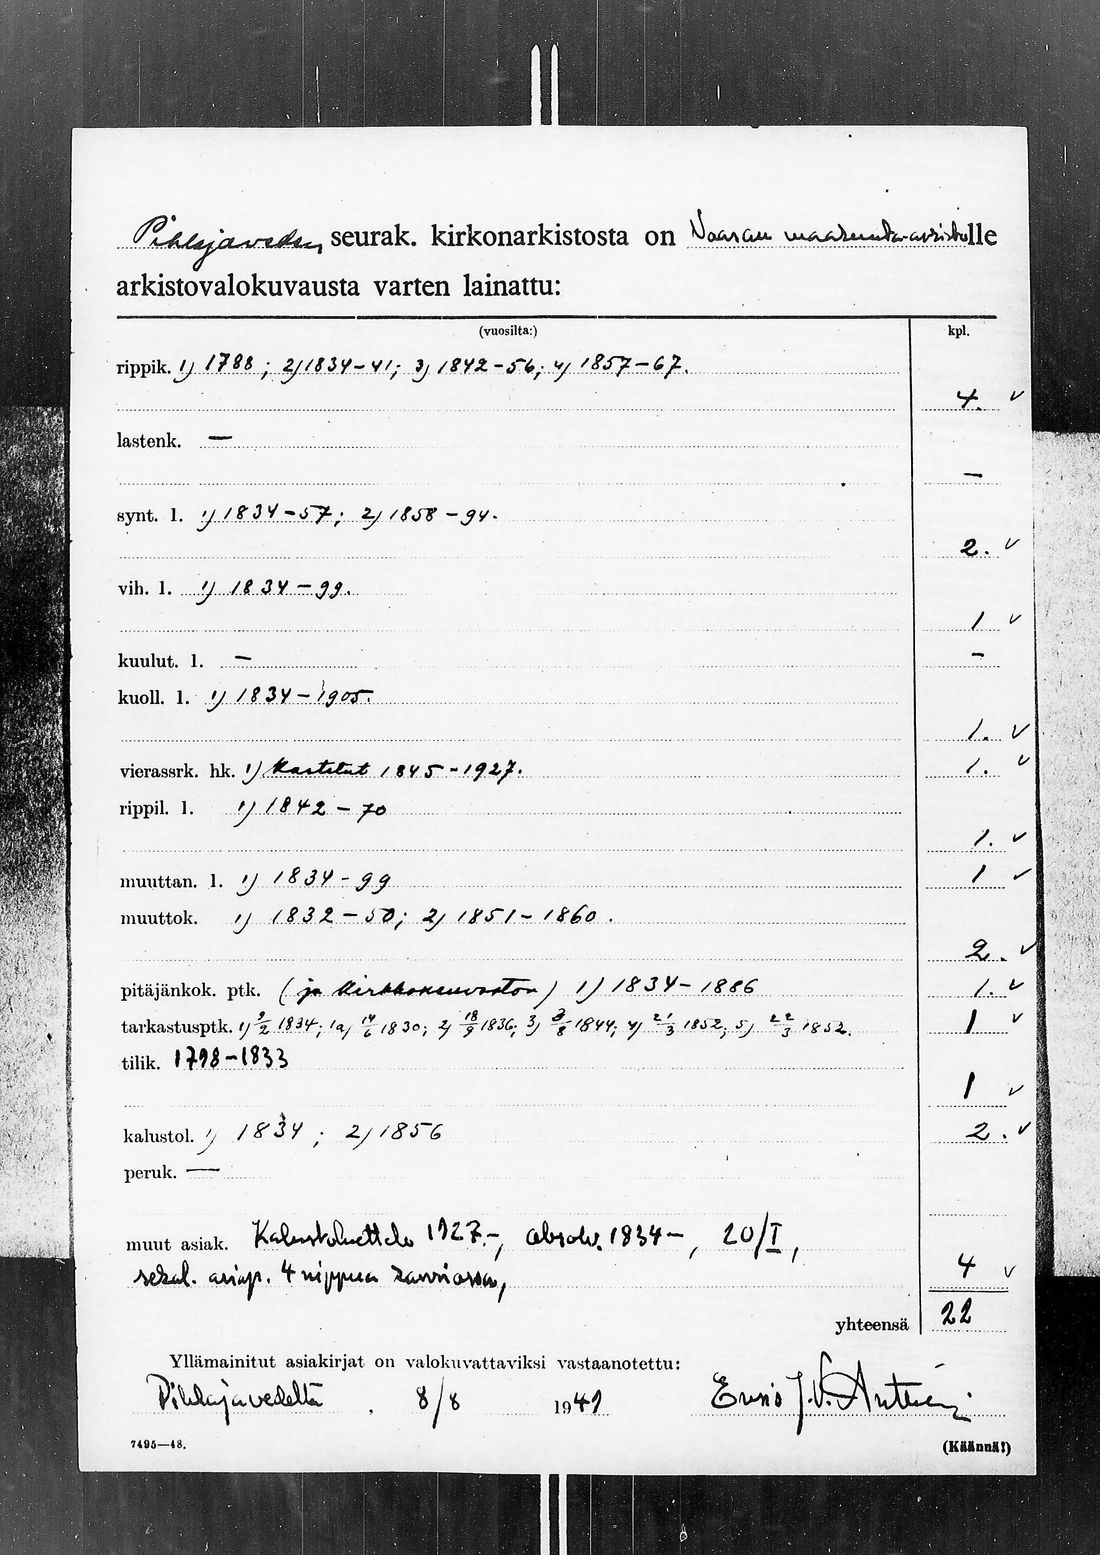 Pihlajaveden seurak. kirkonarkistosta on Vaasan maakunta-arkistolle
arkistovalokuvausta varten lainattu:
(vuosilta:) kpl.
rippik. 1) 1788 ; 2) 1834-41; 3) 1842-56; 4) 1857-67.
4. ✓
lastenk. —
—
synt. l. 1) 1834-57; 2) 1858-94.
2. ✓
vih. l. 1) 1834-99.
1 ✓
kuulut. l. — -
kuoll. l. 1) 1834-1905.
1. ✓
vierassrk. hk. 1) Kastetut 1845-1927. 1. ✓
rippil. l. 1) 1842-70
1. ✓
muuttan. l. 1) 1834-99 1 ✓
muuttok. 1) 1832-50; 2) 1851-1860.
2. ✓
pitäjänkok. ptk. (ja kirkkoneuvoston) 1) 1834-1886 1. ✓
tarkastusptk. 1) 9/2 1834; 1a) 14/6 1830; 2) 18/9 1836; 3) 3/8 1844; 4) 21/3 1852; 5) 22/3 1852. 1 ✓
tilik. 1798-1833
1 ✓
kalustol. 1) 1834 ; 2) 1856 2. ✓
peruk. —
muut asiak. Kalustoluettelo 1927.-, absolv. 1834-, 20/I,
sekal. asiap. 4 nippua 4 ✓
yhteensä 22
Yllämainitut asiakirjat on valokuvattaviksi vastaanotettu:
Pihlajavedeltä, 8/8 1949 J.V.
7495—48. (Käännä!)